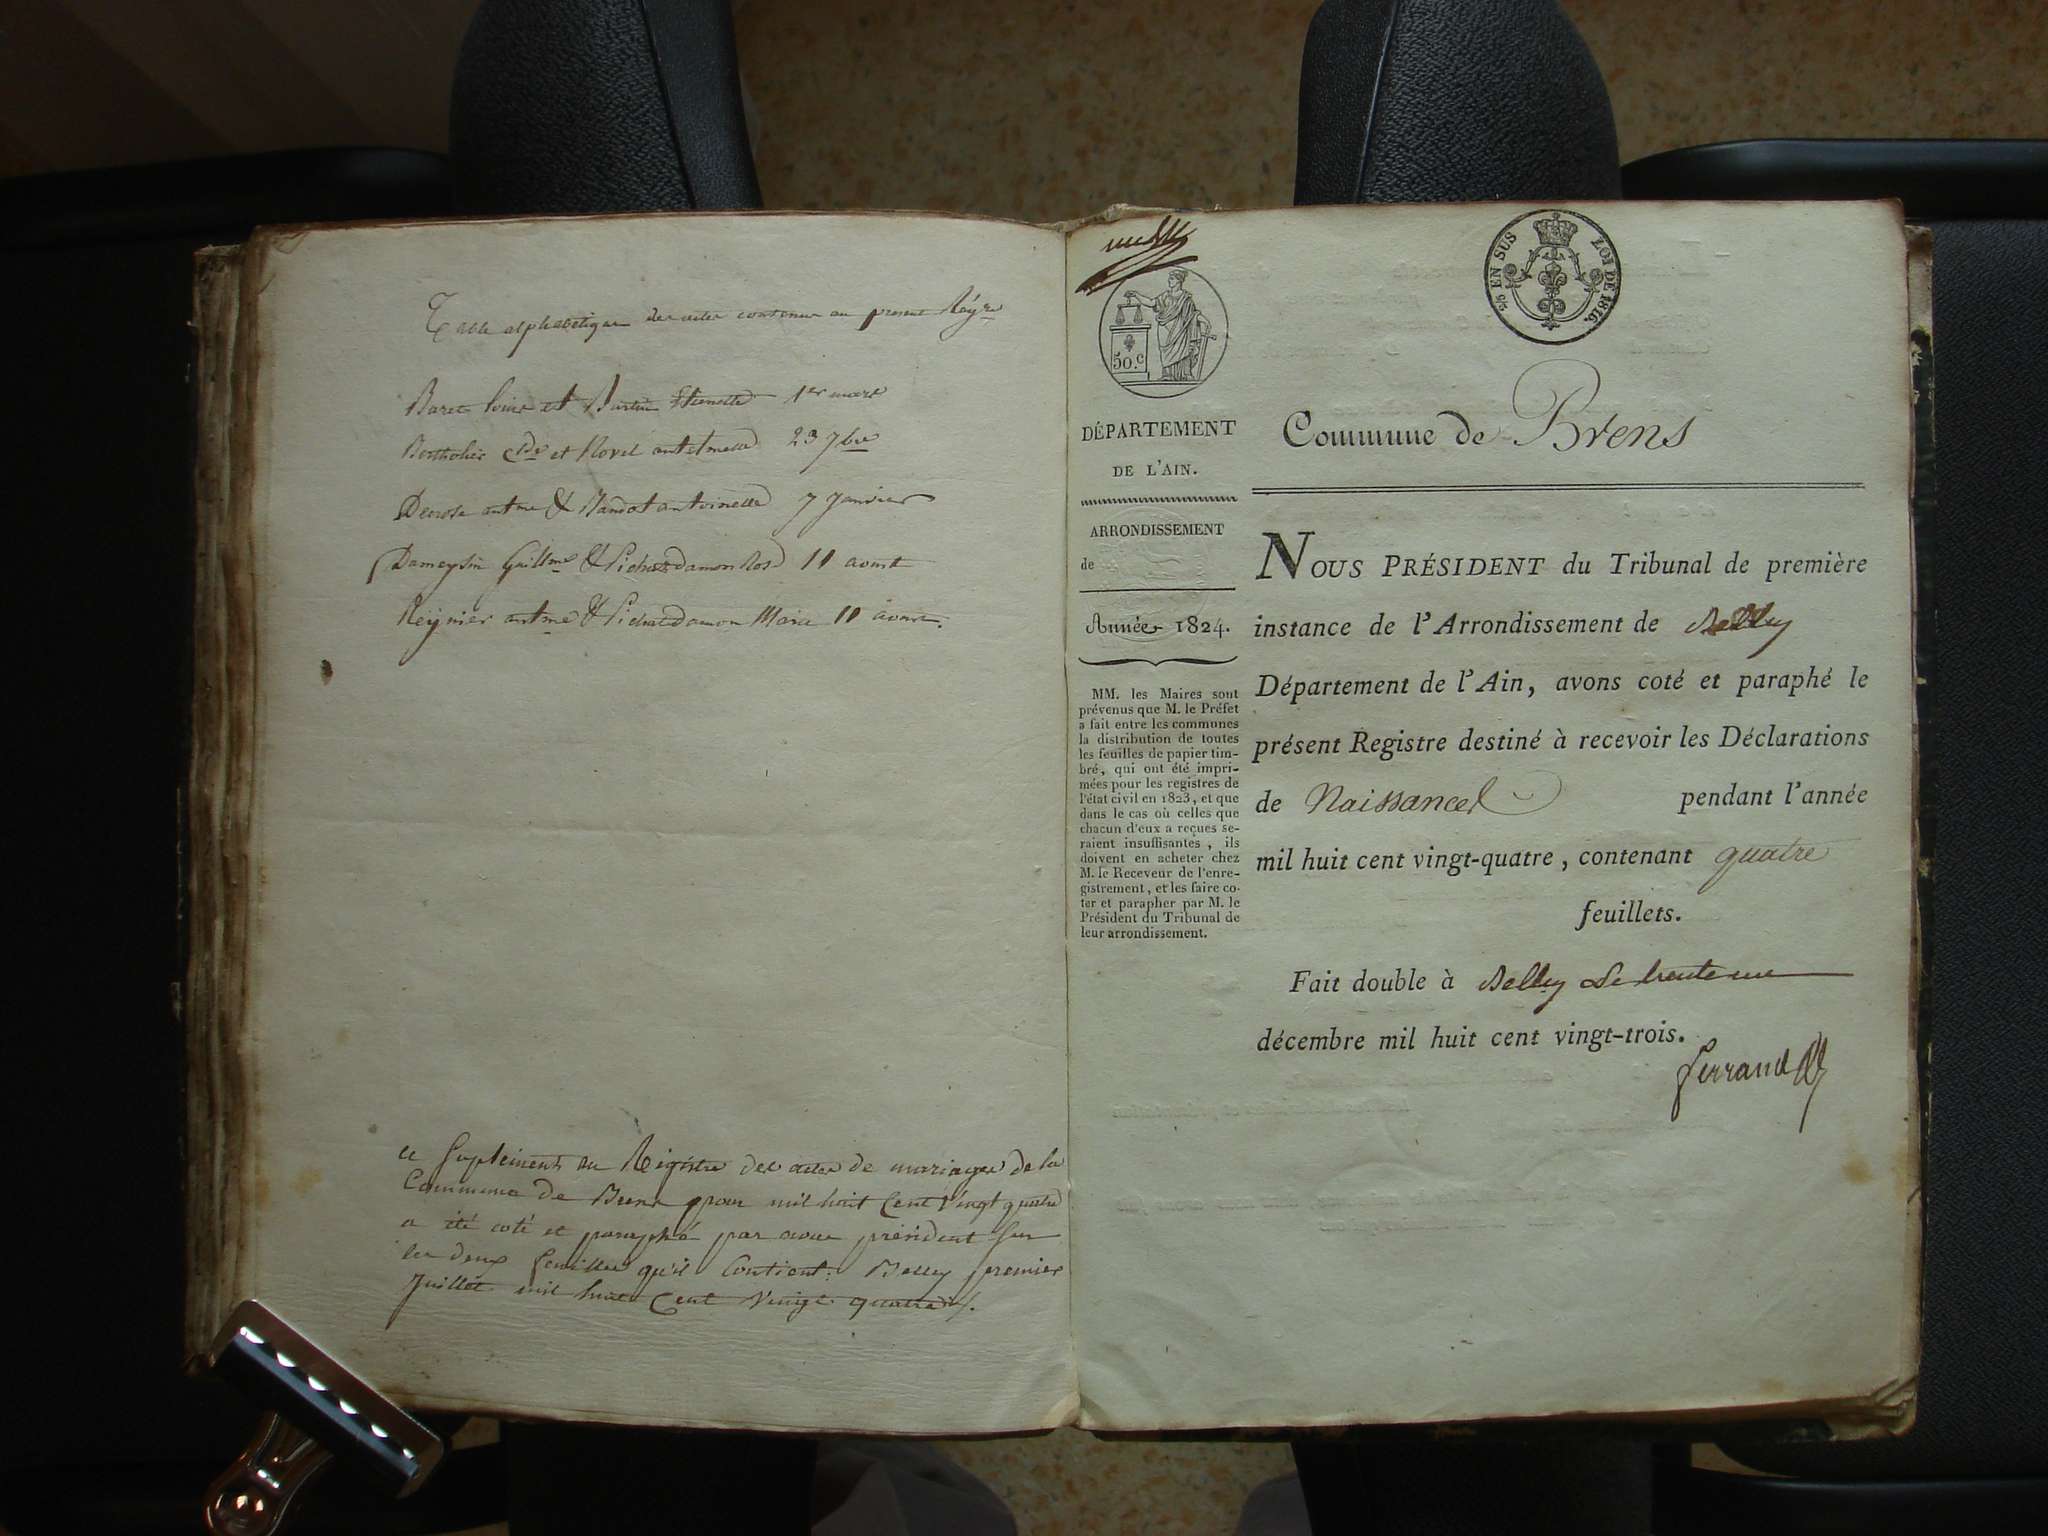 Table alphabetique des actes contenus au present Rég.re
Baret Louis et Burtin Etiennette 1er mars
Bertholier Cde et Rovel antelmette 23 7bre
Decrose antme & Randot antoinette 7 Janvier
Dameysin Guillme & Pichat damon Rose 11 aoust
Reynier antme & Pichat damon Marie 11 aoust.
ce suplément au Régistre des actes de mariages de la
Commune de Brens pour mil huit Cent Vingt quatre
a été coté et paraphé par nous président sur
les deux feuilles qu'il Contient: Belley premier
Juillet mil huit Cent Vingt quatre
50.c
¼ EN SUS LOI DE 1816.
DÉPARTEMENT
DE L'AIN.
ARRONDISSEMENT
de
Année 1824.
MM. les Maires sont
prévenus que M. le Préfet
a fait entre les communes
la distribution de toutes
les feuilles de papier tim-
bré, qui ont été impri-
mées pour les registres de
l'état civil en 1823, et que
dans le cas où celles que
chacun d'eux a reçues se-
raient insuffisantes, ils
doivent en acheter chez
M. le Receveur de l'enre-
gistrement, et les faire co-
ter et parapher par M. le
Président du Tribunal de
leur arrondissement.
Commune de Brens
NOUS PRÉSIDENT du Tribunal de première
instance de l'Arrondissement de Belley
Département de l'Ain, avons coté et paraphé le
présent Registre destiné à recevoir les Déclarations
de Naissances pendant l'année
mil huit cent vingt-quatre, contenant quatre
feuillets.
Fait double à Belley le trente un
décembre mil huit cent vingt-trois.
Ferrand